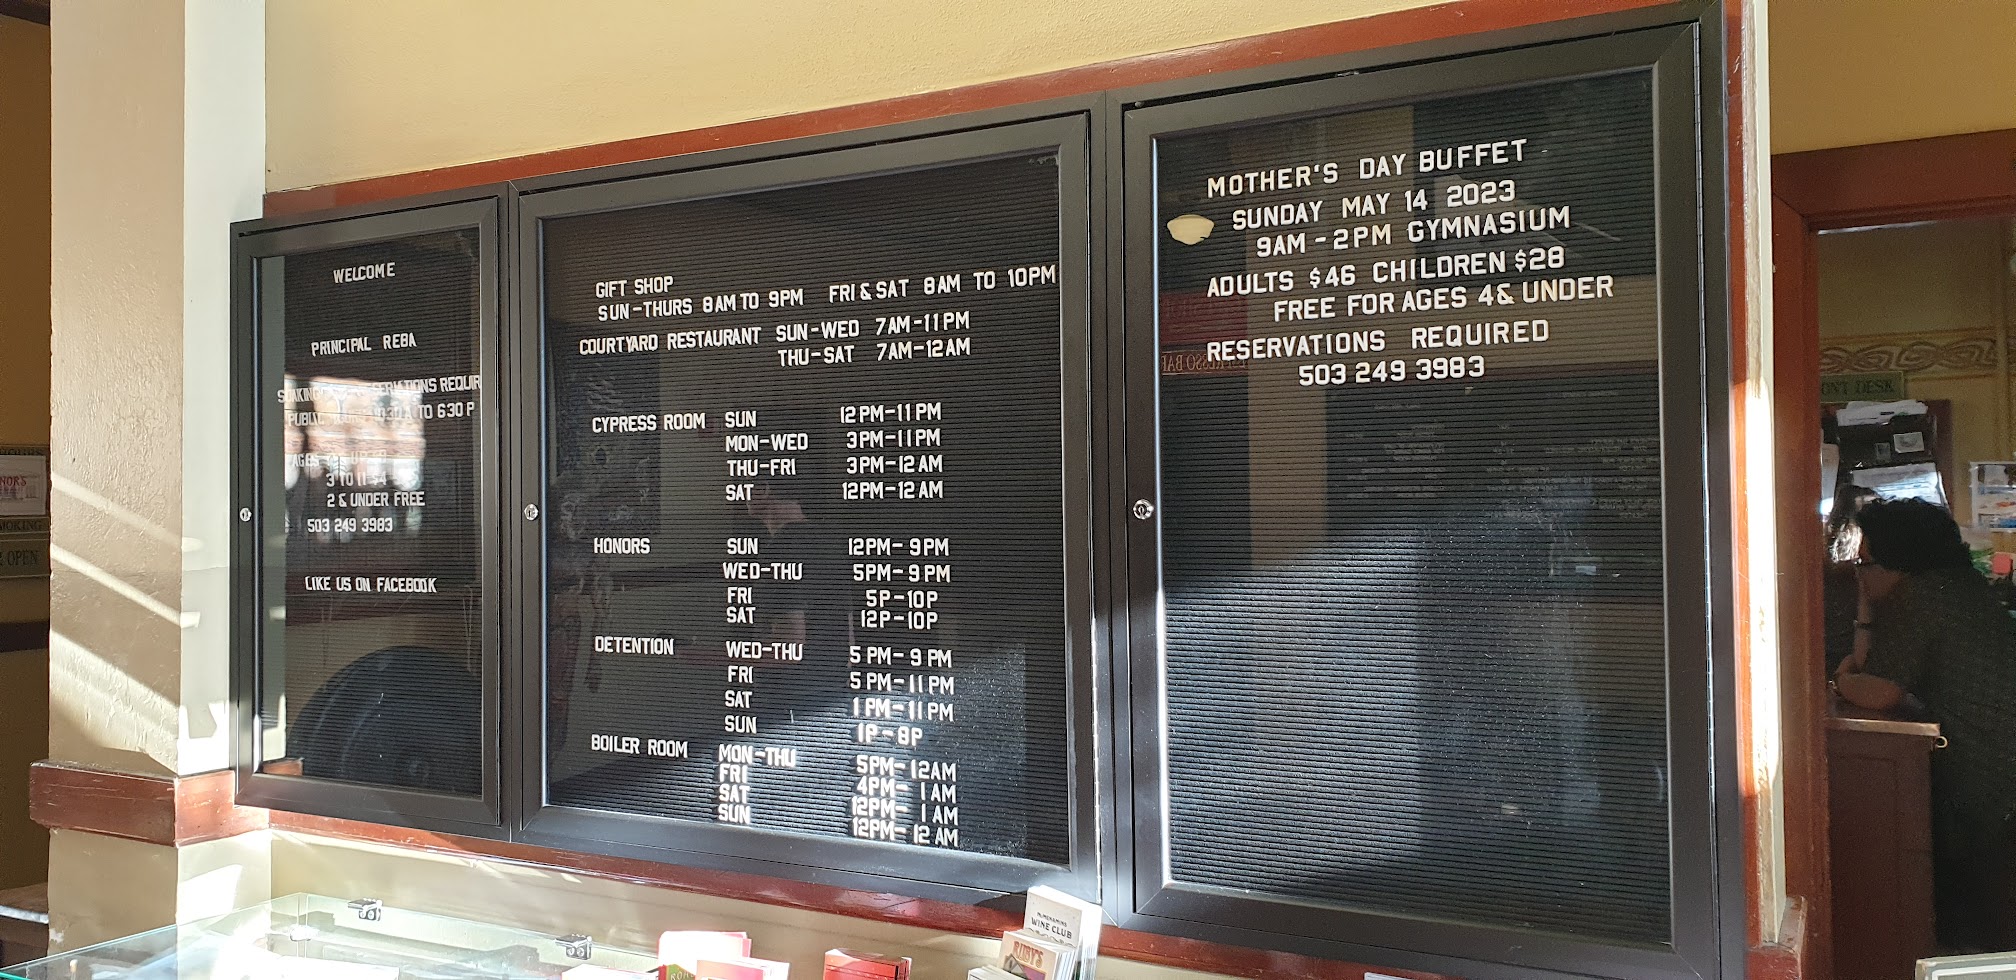 WELCOME
PRINCIPAL REBA
SOAKING RESERVATIONS REQUIR
PUBLIC TO 630 P
AGES
3 TO 11 $4
2 & UNDER FREE
503 249 3983
LIKE US ON FACEBOOK
GIFT SHOP
SUN-THURS 8AM TO 9PM FRI & SAT 8AM TO 10PM
COURTYARD RESTAURANT SUN-WED 7AM-11PM
THU-SAT 7AM-12AM
CYPRESS ROOM SUN 12PM-11PM
MON-WED 3PM-11PM
THU-FRI 3PM-12AM
SAT 12PM-12AM
HONORS SUN 12PM-9PM
WED-THU 5PM-9PM
FRI 5P-10P
SAT 12P-10P
DETENTION WED-THU 5PM-9PM
FRI 5PM-11PM
SAT 1PM-11PM
SUN 1P-8P
BOILER ROOM MON-THU 5PM-12AM
FRI 4PM-1AM
SAT 12PM-1AM
SUN 12PM-12AM
MOTHER'S DAY BUFFET
SUNDAY MAY 14 2023
9AM-2PM GYMNASIUM
ADULTS $46 CHILDREN $28
FREE FOR AGES 4& UNDER
RESERVATIONS REQUIRED
503 249 3983
ONT DESK
NOR'S
MOKING
OPEN
McMENAMINS
WINE CLUB
RUBY'S